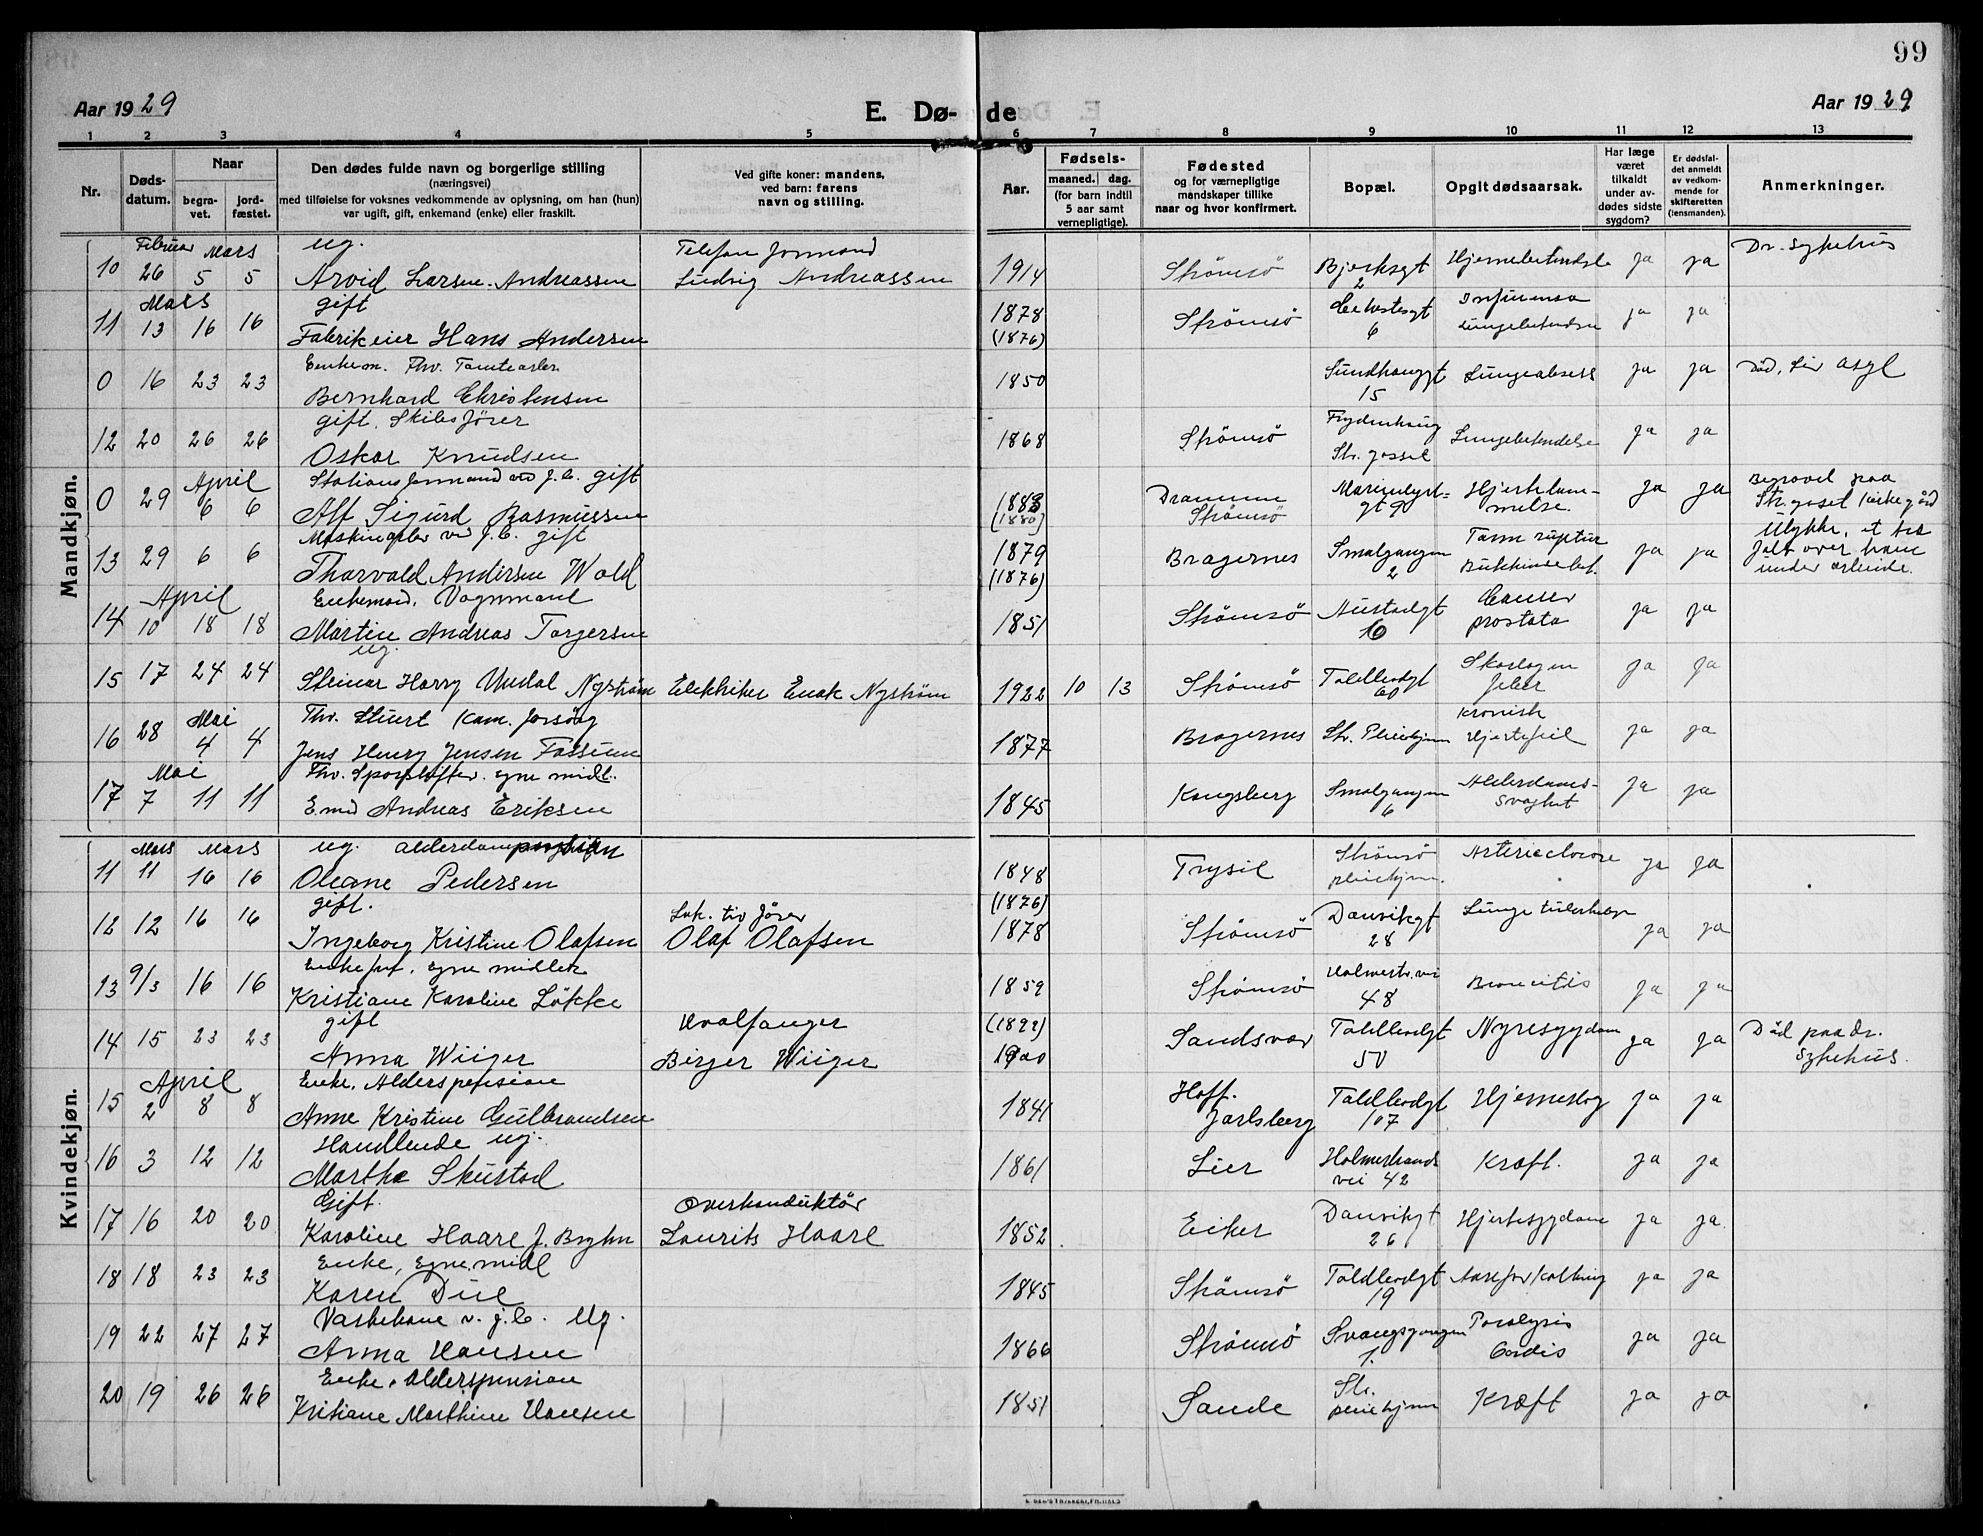 99
Aar 1929
E. Dø-
de
Aar 1929
1 2 3 4 5 6 7 8 9 10 11 12 13
Nr.
Døds-
datum.
Naar
begra-
vet.
jord-
fæstet.
Den dødes fulde navn og borgerlige stilling
(næringsvei)
med tilføielse for voksnes vedkommende av oplysning, om han (hun)
var ugift, gift, enkemand (enke) eller fraskilt.
Ved gifte koner: mandens,
ved barn: farens
navn og stilling.
Aar.
Fødsels-
maaned. dag.
(for barn indtil
5 aar samt
vernepligtige).
Fødested
og for værnepligtige
mandskaper tillike
naar og hvor konfirmert.
Bopæl.
Opgit dødsaarsak.
Har læge
været
tilkaldt
under av-
dødes sidste
sygdom?
Er dødsfal-
det anmeldt
av vedkom-
mende for
skifteretten
(lensmanden).
Anmerkninger.
Mandkjøn.
Februar Mars ug. Telefonformand Dr. sykehus
10 26 5 5 Arvid Larsen-Andreassen Ludvig Andreassen 1914 Strömsö Bjerksgt 2 Hjernebetendelse ja ja
Mars gift
11 13 16 16 Fabrikeier Hans Andersen 1878 (1876) Strömsö 6 Influensa Lungebetendelse ja ja
Enkem. Fhv.
0 16 23 23 Bernhard Christensen 1850 Sundhaugt 15 Lungeabsess ja ja Död, Lier Asyl
gift. Skibsförer
12 20 26 26 Oskar Knudsen 1868 Strömsö Frydenhaug Str. gossel Lungebetendelse ja ja
April Stationsformand ved J.b. gift
0 29 6 6 Alf Sigurd Rasmussen 1883 (1880) Drammen Strömsö Marienlyst- gt 9 Hjertelam- melse. ja ja Begravet paa Str. goset kirkegård
Maskinarb ved J.b. gift
13 29 6 6 Thorvald Andersen Wold 1879 (1876) Bragernes Smalgangen 2 Tarm ruptur Bukhindebet. ja ja Ulykke, et træ falt over ham under arbeide.
April Enkemand. Vognmand
14 10 18 18 Martin Andreas Torgersen 1851 Strömsö Austadgt 10 Cancer prostata ja ja
ug.
15 17 24 24 Steinar Harry Undal Nyström Elektriker Enok Nyström 1922 10 13 Strömsö Toldbodgt 60 Skarlagen feber ja ja
Mai Fhv. Stuert Kom. forsörg
16 28 4 4 Jens Henry Jensen Fossum 1877 Bragernes Str. Pleiehjem Kronisk Hjertefeil ja ja
Mai Fhv. egne midl.
17 7 11 11 Emil Andreas Eriksen 1845 Kongsberg Smalgangen 6 Alderdoms- svaghet ja ja
Kvindekjøn.
Mars Mars ug. alderdomspension
11 11 16 16 Oleane Pedersen 1848 Trysil Strömsö pleiehjem. Arteriosclerose ja ja
gift. Lok. tiv förer
12 12 16 16 Ingeborg Kristine Olafsen Olaf Olafsen (1876) 1878 Strömsö Dansvikgt 28 Lungetuberkulose ja ja
Enkefru. Egne midler
13 9/3 16 16 Kristiane Karoline Lökke 1859 Strömsö Holmestr. vei 48 Broncitis ja ja
gift Hvalfanger
14 15 23 23 Anna Wiiger Birger Wiiger (1899) 1900 Sandsvær Toldbodgt 50 Nyresygdom ja ja Död paa Dr. Sykehus.
April Enke. Alderspension
15 2 8 8 Anne Kristine Gulbrandsen 1841 Hoff. Jarlsberg Toldbodgt 107 Hjerneslag ja ja
Handlende ug.
16 3 12 12 Marthe Skustad 1861 Lier Holmestrands vei 42 Kræft. ja ja
Gift. Overkonduktör
17 16 20 20 Karoline Haare f. Bryhn Laurits Haare 1852 Eiker Dansvikgt 26 Hjertesygdom ja ja
Enke, Egne midl
18 18 23 23 Karen Due 1845 Strömsö Toldbodgt 19 Aareforkalkning ja ja
Vaskekone v. J.b. Ug.
19 22 27 27 Anna Hansen 1866 Strömsö Svangsgangen 1. Paralysis Cordis ja ja
Enke. Alderspension
20 19 26 26 Kristiane Marthine Hansen 1851 Sande Str. pleiehjem Kræft ja ja